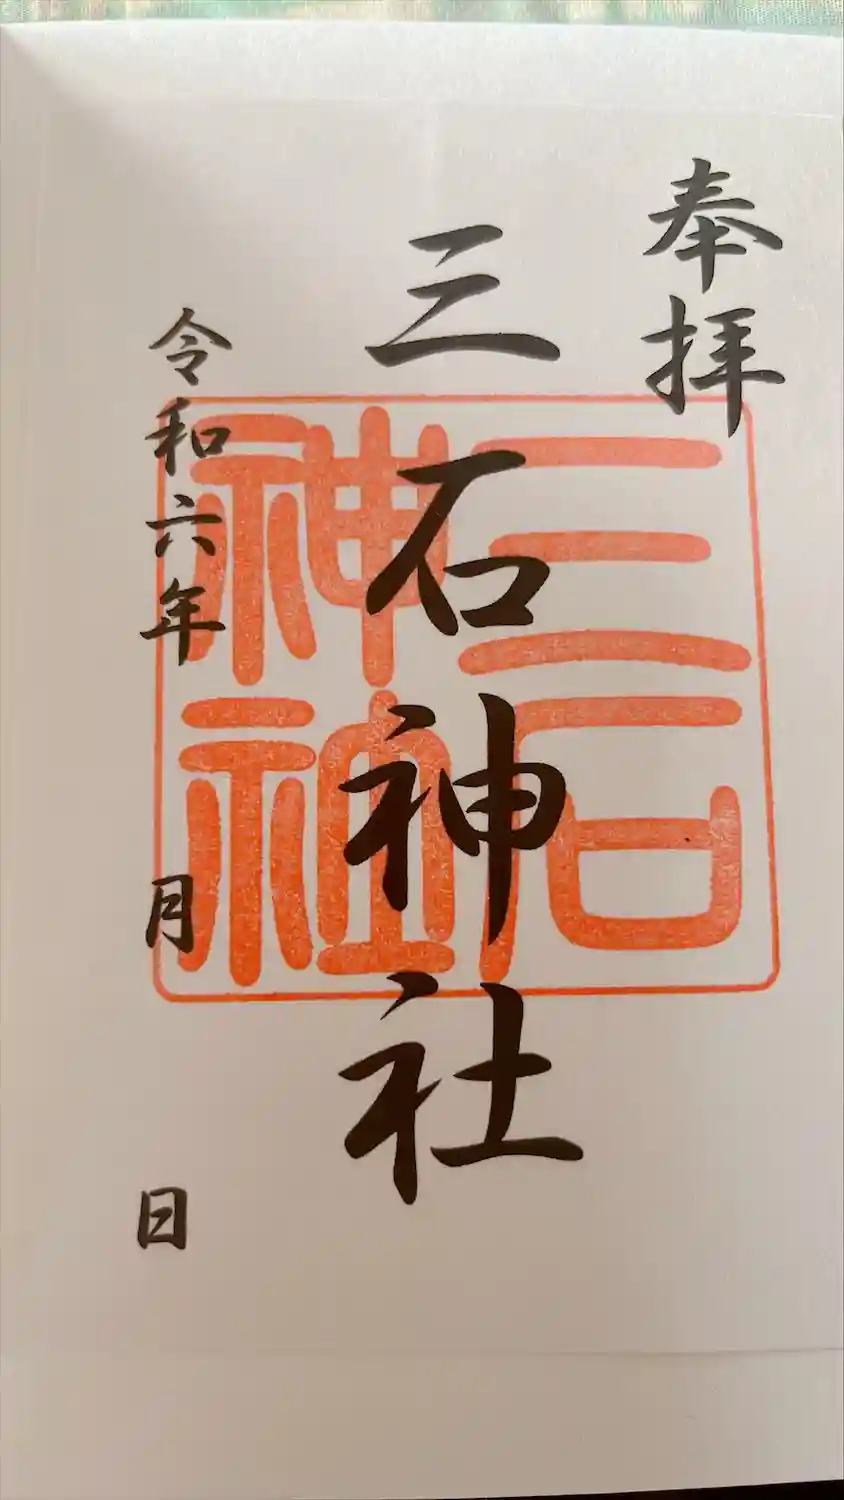 奉拝
三石神社
三石神社
令和六年 月 日